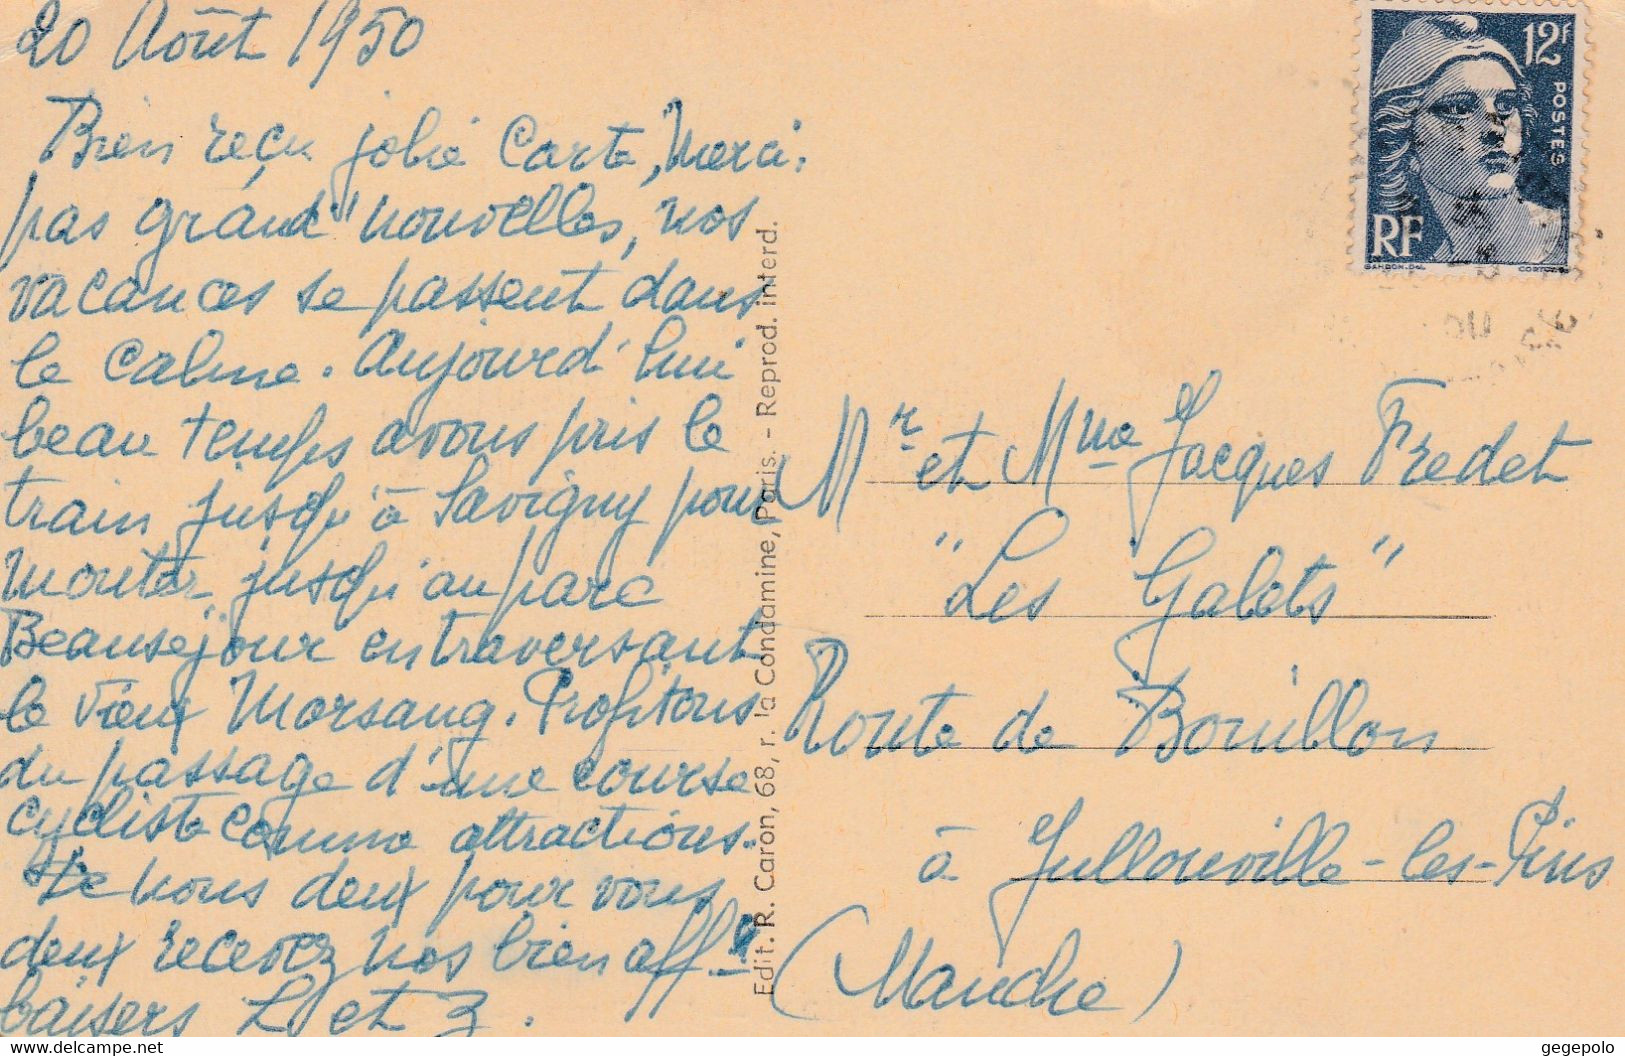 20 Août 1950
Bien reçu jolie Carte, Merci.
pas grand' nouvelles, nos
vacances se passent dans
le calme. Aujourd'hui
beau temps avons pris le
train jusqu'à Savigny pour
monter jusqu'au parc
Beauséjour en traversant
le vieux Morsang. Profitons
du passage d'une course
cycliste comme attractions.
De nous deux pour vous
deux recevez nos bien aff.
baisers L et
Edit. R. Caron, 68, r. la Condamine, Paris. - Reprod. interd.
12F
POSTES
RF
GANDON-Del.
Mr et Mme Jacques Fredet
"Les Galets"
Route de Bouillon
à Jullouville-les-Pins
(Manche)
www.delcampe.net
gegepolo